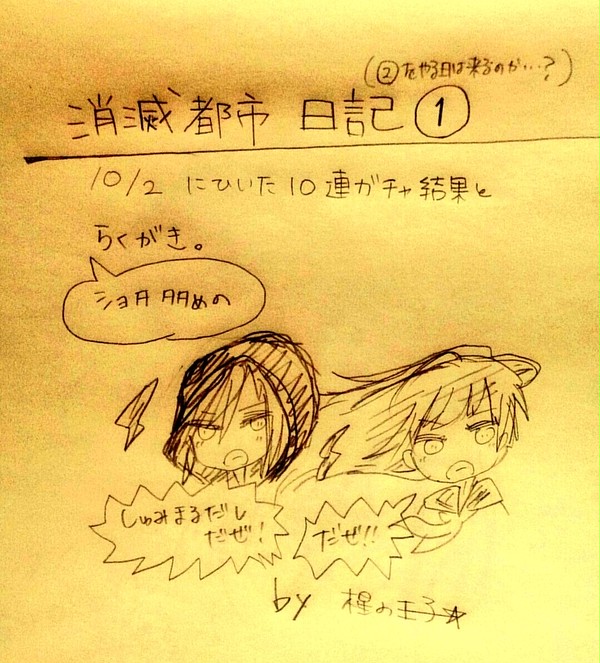 (②をやる日は来るのか…?)
消滅都市 日記①
10/2 にひいた10連ガチャ結果と
らくがき。
ショタ多めの
しゅみまるだし
だぜ!
だぜ!!
by 星の王子☆